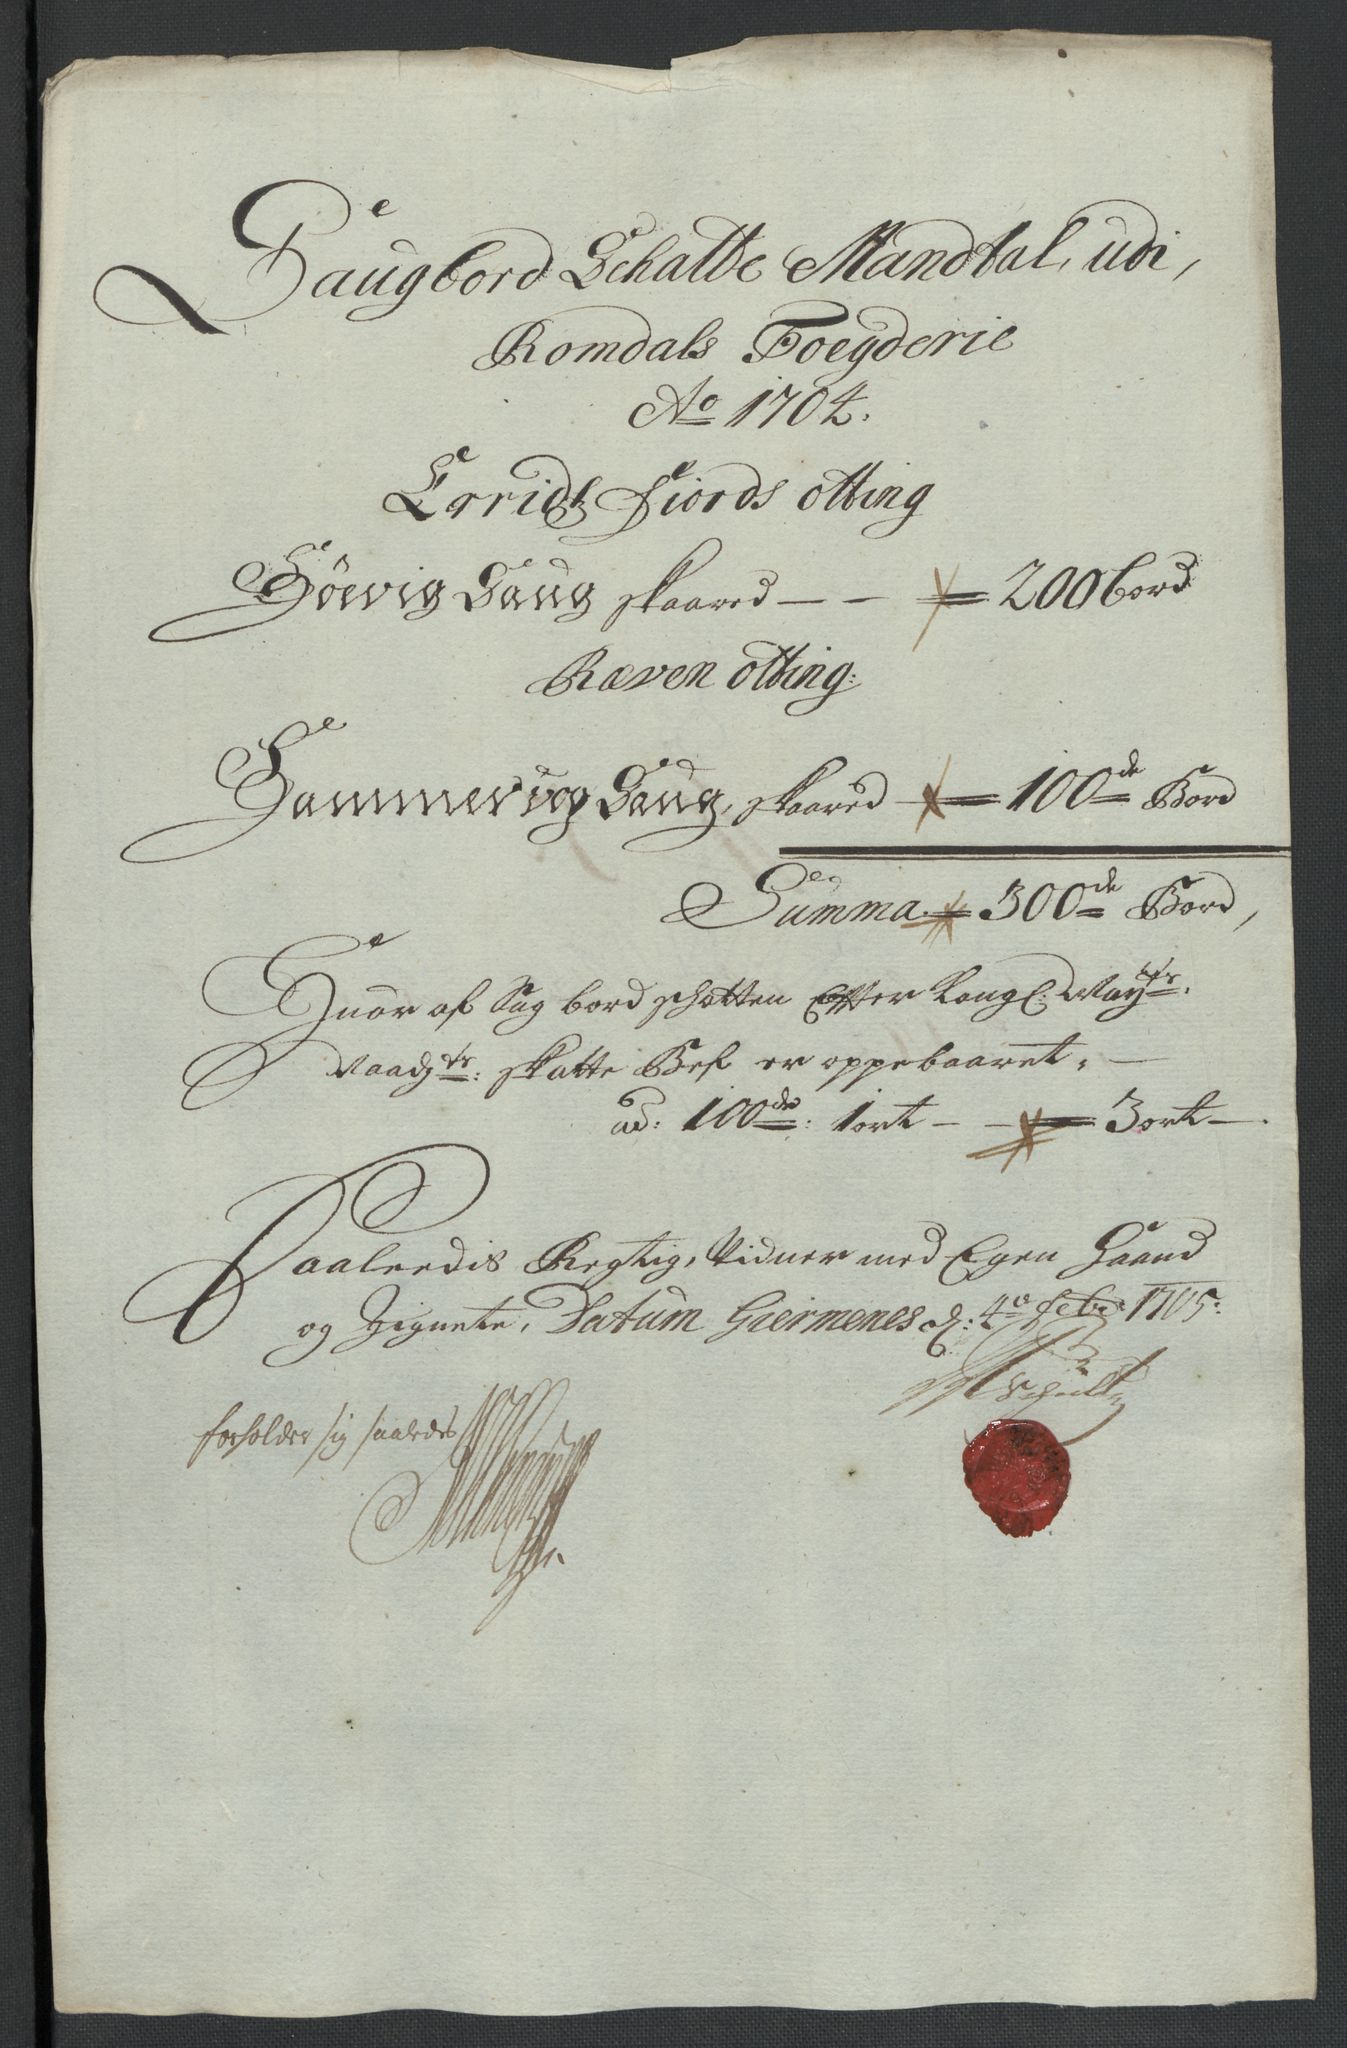 Saugbord Schatte Mandtal, udi,
Romdals Foegderie
Ao 1704.
Erridtz Fiords otting
Höevig Saug skaared — — = 200 bord
Ræven otting:
Hammervog Saug, skaared — = 100de Bord
Summa = 300de Bord,
Huor af Sag bord schatten Effter Kongl: May:ts
Naadgte: skatte Bef er oppebaaret, —
ad: 100de: 1 ort — — = 3 ort —.
Saaleedis Regtig, Vidner med Egen Haand
og Zignete, Datum Giermenes d: 4de febr: 1705:
forholder sig saaledes